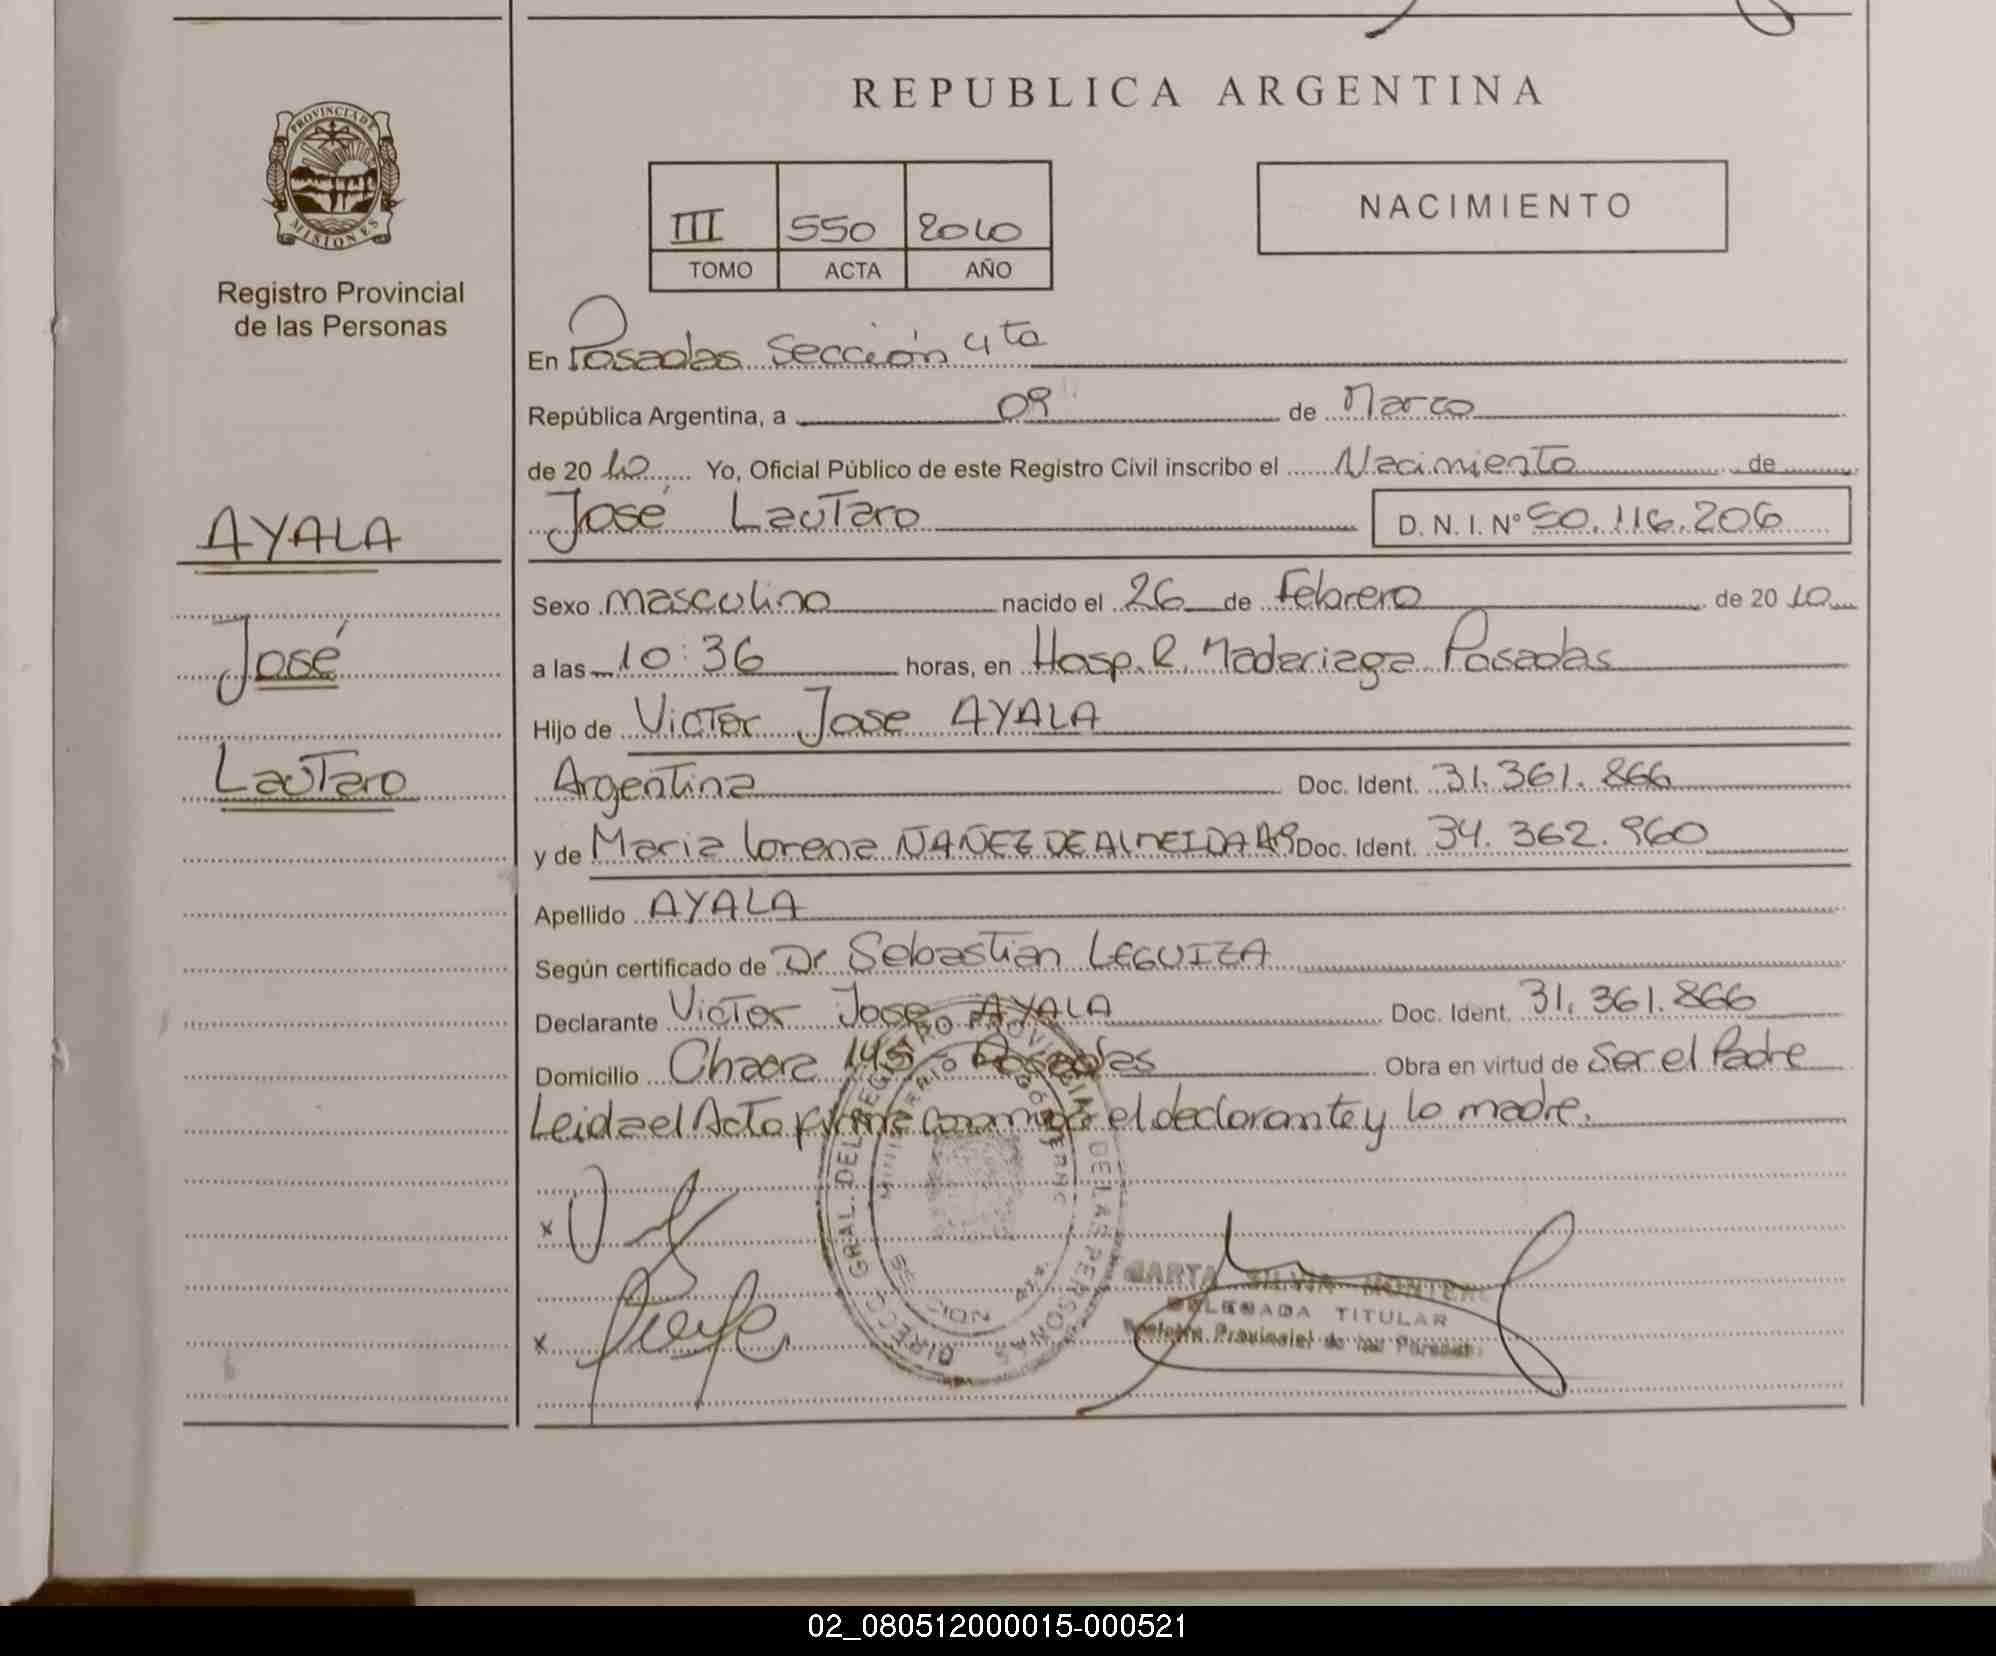 REPUBLICA ARGENTINA
PROVINCIA DE
MISIONES
Registro Provincial
de las Personas
III 550 2010
TOMO ACTA AÑO
NACIMIENTO
En Posadas Sección 4ta
República Argentina, a 09 de Marzo
de 2010 Yo, Oficial Público de este Registro Civil inscribo el Nacimiento de
José Lautaro D. N. I. Nº 50.116.206
AYALA
José
Lautaro
Sexo masculino nacido el 26 de Febrero de 2010
a las 10:36 horas, en Hosp. R. Madariaga Posadas
Hijo de Victor Jose AYALA
Argentina Doc. Ident. 31.361.866
y de Maria Lorena ÑAÑEZ DE ALMEIDA Doc. Ident. 34.362.960
Apellido AYALA
Según certificado de Dr Sebastian LEGUIZA
Declarante Victor Jose AYALA Doc. Ident. 31.361.866
Domicilio Chacra 145 Posadas Obra en virtud de Ser el Padre
Leida el Acta firma conmigo el declarante y la madre.
x
x
DIRECC. GRAL. DEL REGISTRO PROVINCIAL DE LAS PERSONAS
MARTA SILVIA
DELEGADA TITULAR
Registro Provincial de las Personas
02_080512000015-000521